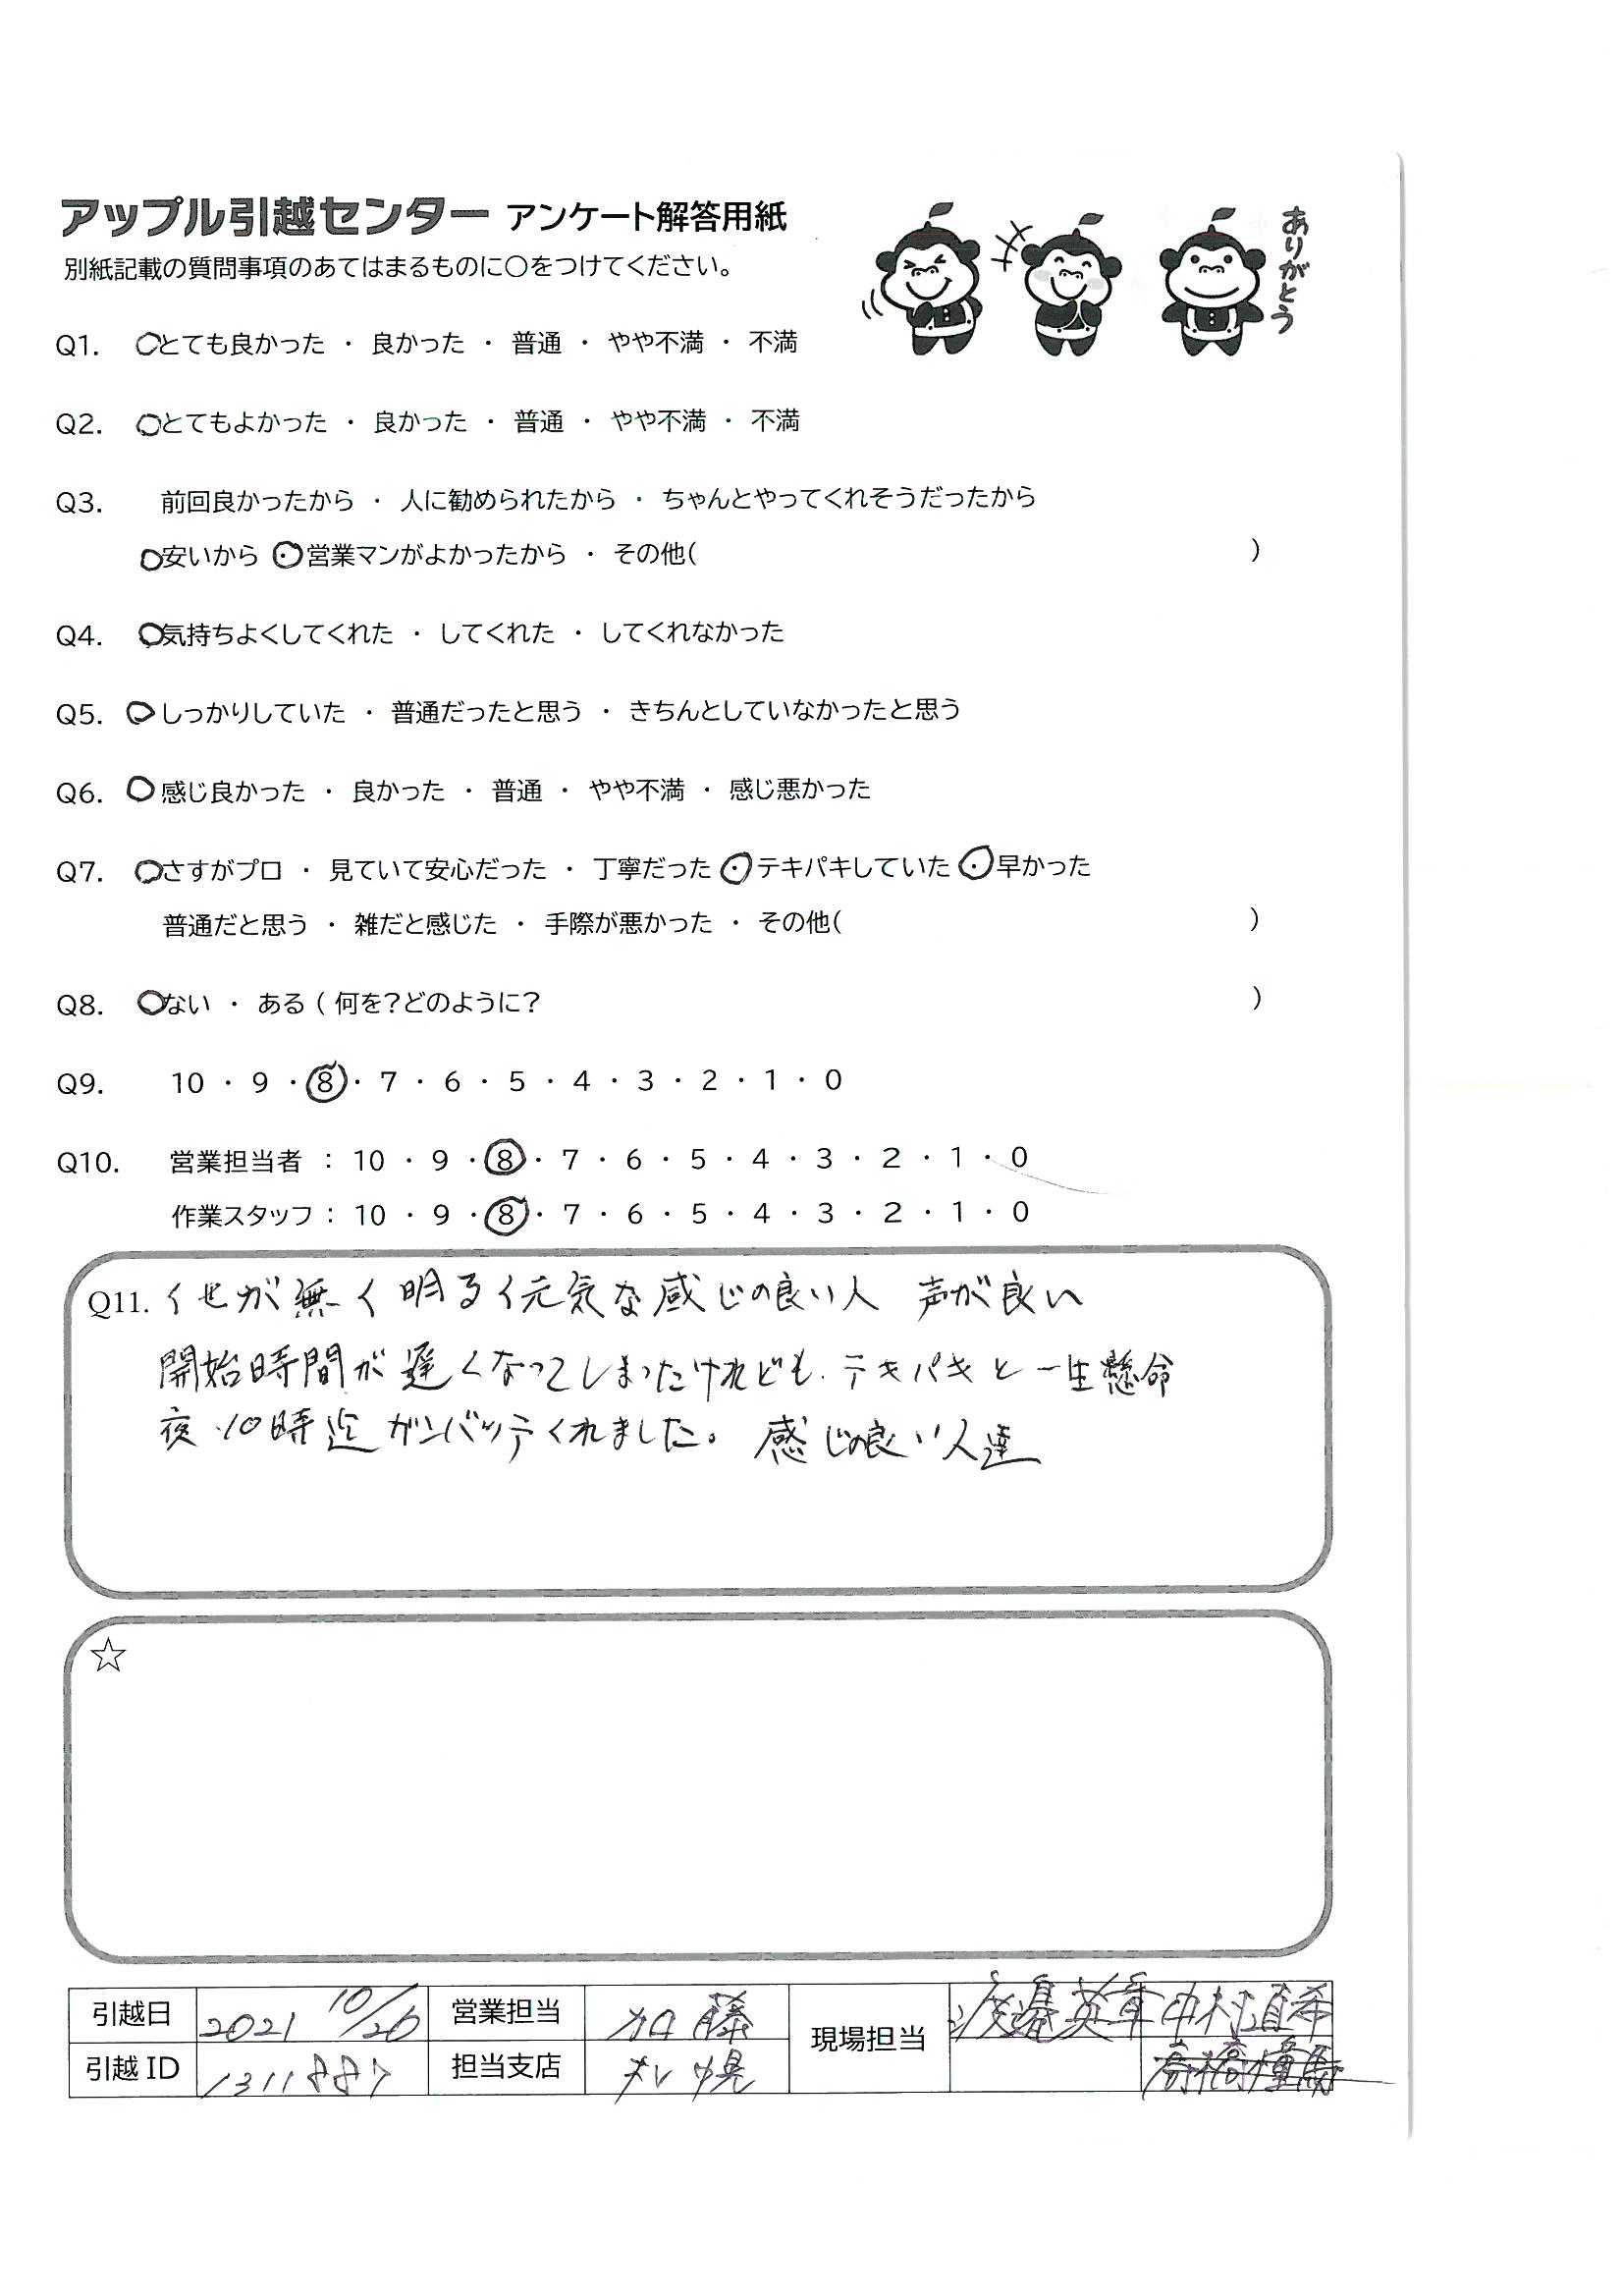 アップル引越センター アンケート解答用紙
別紙記載の質問事項のあてはまるものに○をつけてください。
ありがとう
Q1. とても良かった ・ 良かった ・ 普通 ・ やや不満 ・ 不満
Q2. とてもよかった ・ 良かった ・ 普通 ・ やや不満 ・ 不満
Q3. 前回良かったから ・ 人に勧められたから ・ ちゃんとやってくれそうだったから
安いから ・ 営業マンがよかったから ・ その他( )
Q4. 気持ちよくしてくれた ・ してくれた ・ してくれなかった
Q5. しっかりしていた ・ 普通だったと思う ・ きちんとしていなかったと思う
Q6. 感じ良かった ・ 良かった ・ 普通 ・ やや不満 ・ 感じ悪かった
Q7. さすがプロ ・ 見ていて安心だった ・ 丁寧だった ・ テキパキしていた ・ 早かった
普通だと思う ・ 雑だと感じた ・ 手際が悪かった ・ その他( )
Q8. ない ・ ある ( 何を?どのように? )
Q9. 10 ・ 9 ・ 8 ・ 7 ・ 6 ・ 5 ・ 4 ・ 3 ・ 2 ・ 1 ・ 0
Q10. 営業担当者 : 10 ・ 9 ・ 8 ・ 7 ・ 6 ・ 5 ・ 4 ・ 3 ・ 2 ・ 1 ・ 0
作業スタッフ : 10 ・ 9 ・ 8 ・ 7 ・ 6 ・ 5 ・ 4 ・ 3 ・ 2 ・ 1 ・ 0
Q11. くせが無く明るく元気な感じの良い人 声が良い
開始時間が遅くなってしまったけれども、テキパキと一生懸命
夜10時迄ガンバッテくれました。感じの良い人達
☆
引越日 2021 10/26 営業担当 加藤 現場担当 渡邉英章 中村直希
引越ID 1311887 担当支店 札幌 高橋